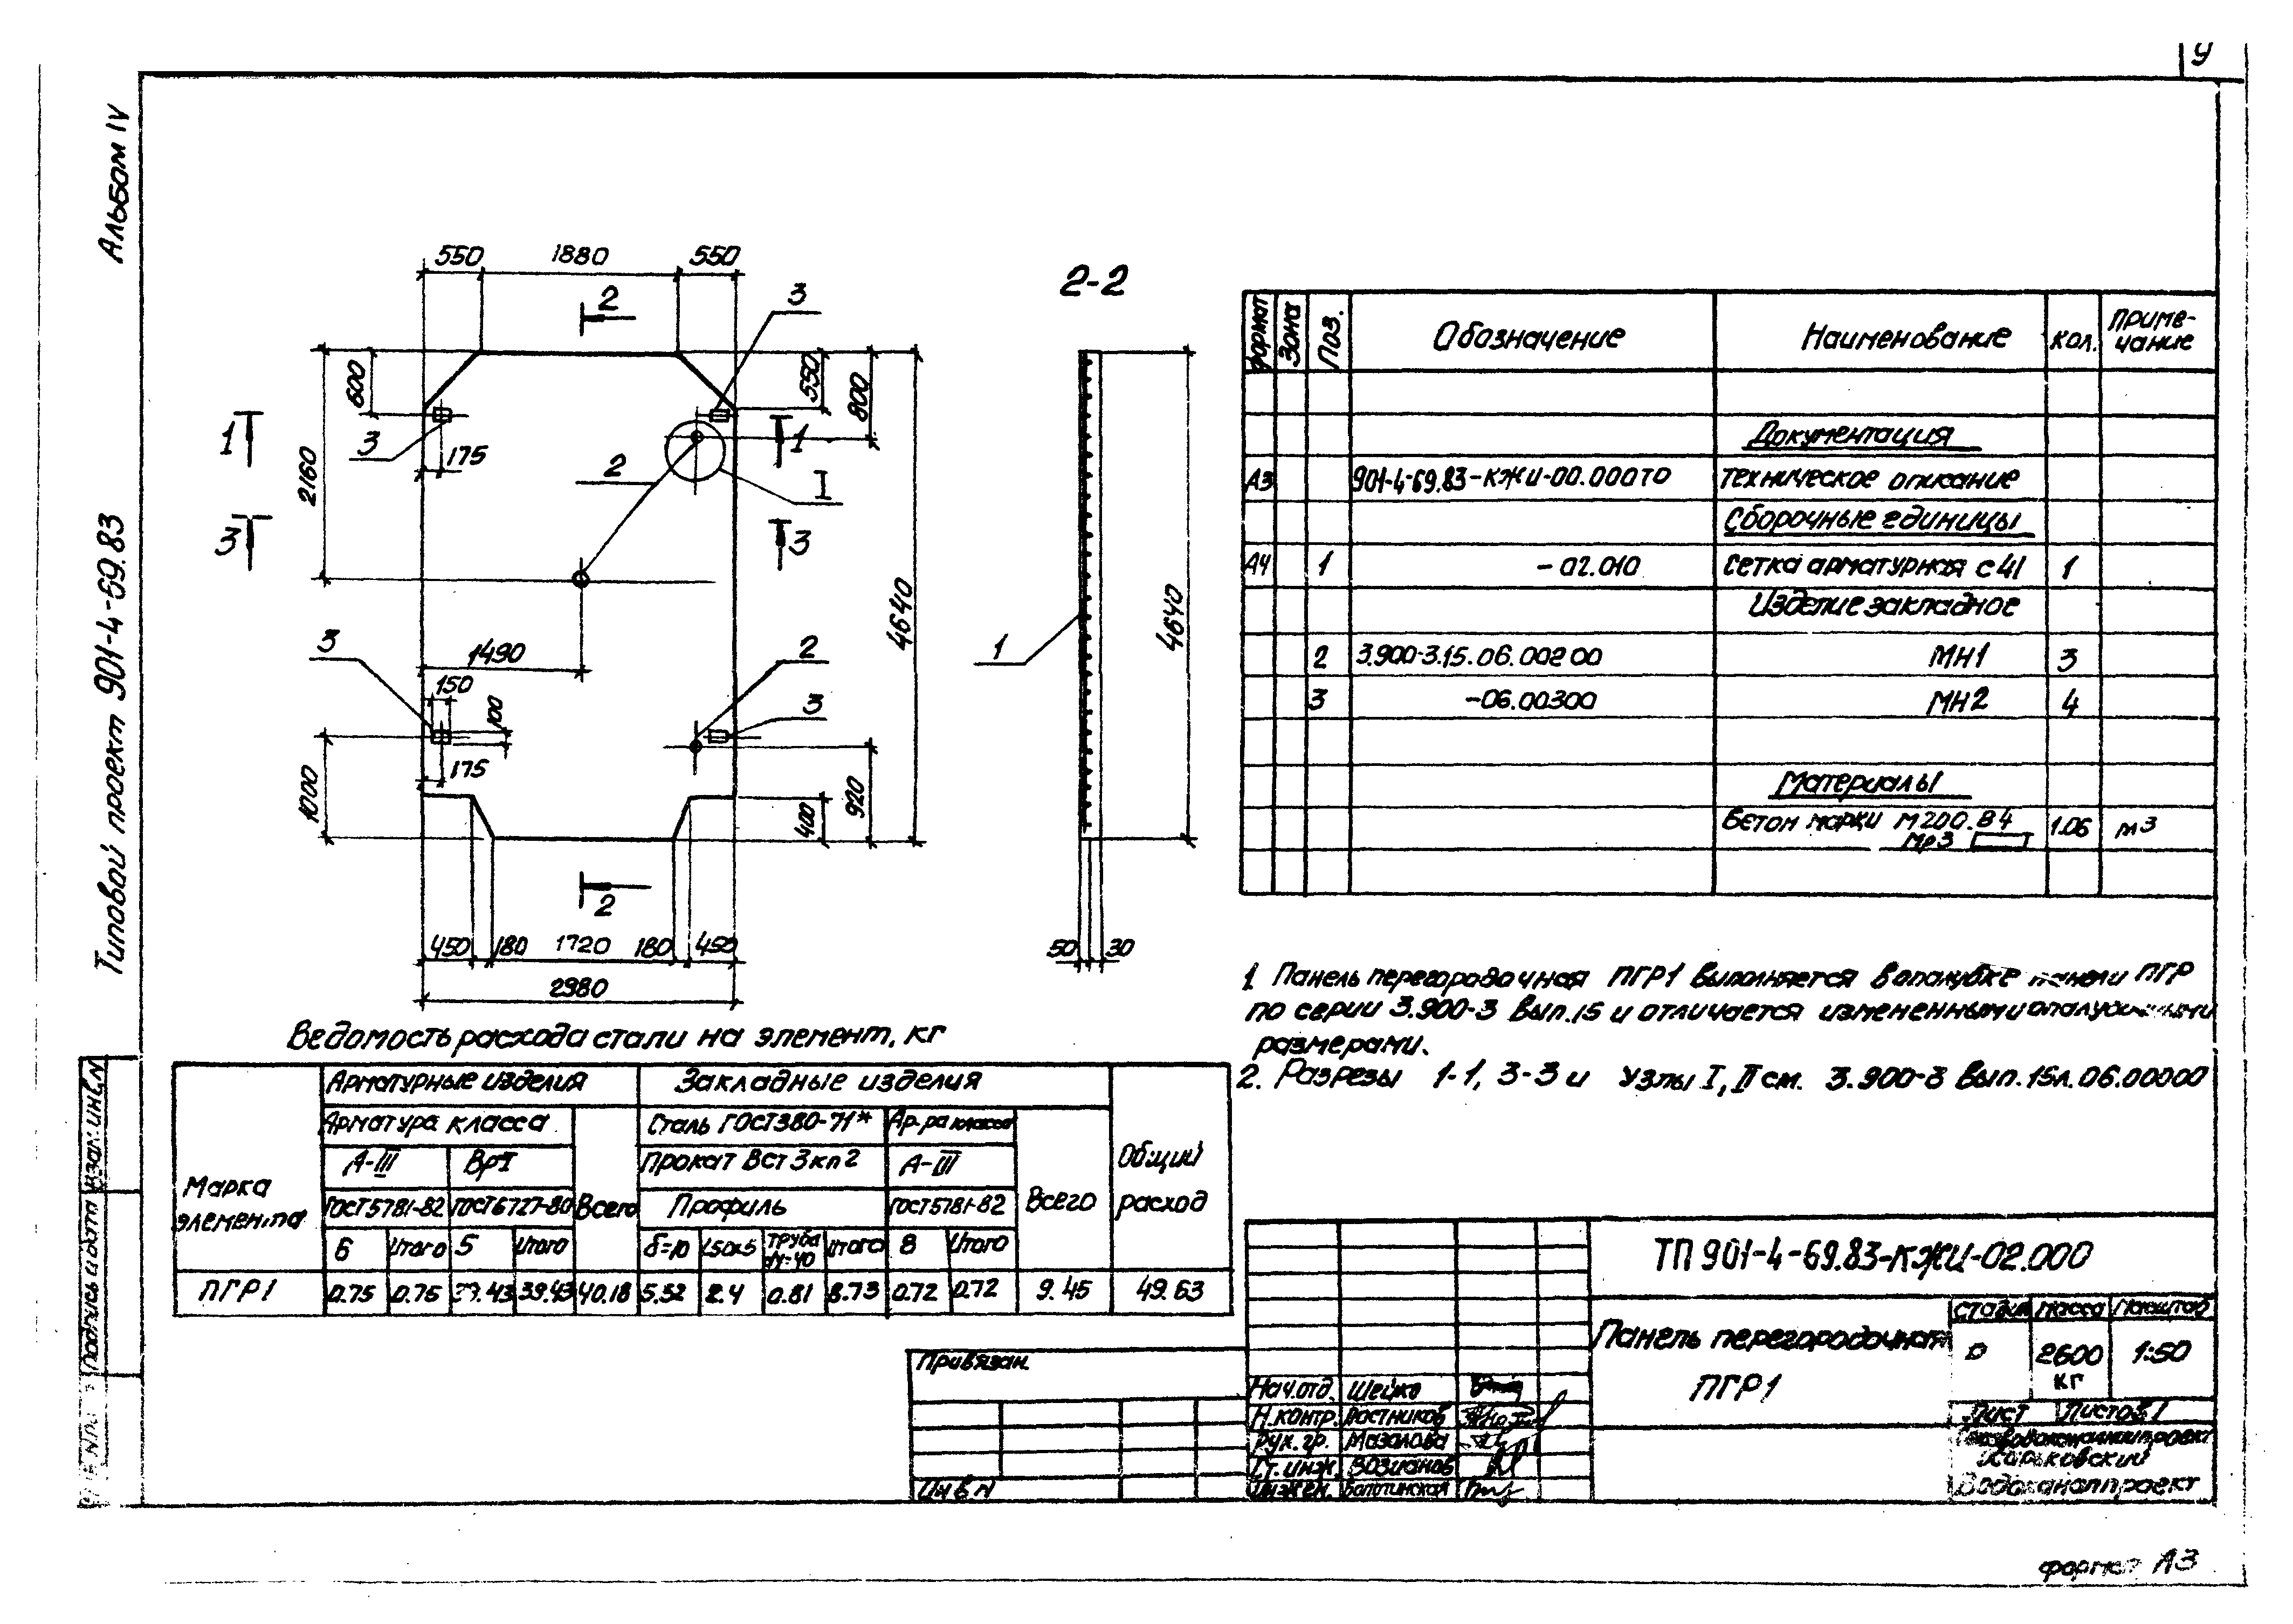 У
Альбом IV
Типовой проект 901-4-69.83
550 1880 550
2 3
2-2
600 550 800
1 3 175 2 1
I
2160
3 3
4640
3 1490 2
150 100 3
175
1000 400 920
2
450 180 1720 180 450
2980
1 4640
50 30
Формат Зона Поз. Обозначение Наименование Кол. Приме-
чание
Документация
А3 901-4-69.83-КЖИ-00.000ТО Техническое описание
Сборочные единицы
А4 1 -02.010 Сетка арматурная С41 1
Изделие закладное
2 3.900-3.15.06.00200 МН1 3
3 -06.00300 МН2 4
Материалы
Бетон марки М200.В4 1.06 м3
Мрз
1. Панель перегородочная ПГР1 выполняется в опалубке панели ПГР
по серии 3.900-3 Вып.15 и отличается измененными опалубочными
размерами.
2. Разрезы 1-1, 3-3 и Узлы I, II см. 3.900-3 Вып.15л.06.00000
Ведомость расхода стали на элемент, кг
Марка
элемента
Арматурные изделия Закладные изделия Общий
расход
Арматура класса Всего Сталь ГОСТ380-71* Ар-ра класса Всего
А-III ВрI Прокат ВСт3кп2 А-III
ГОСТ5781-82 ГОСТ6727-80 Профиль ГОСТ5781-82
6 Итого 5 Итого δ=10 L50х5 Труба
dу=40 Итого 8 Итого
ПГР1 0.75 0.75 39.43 39.43 40.18 5.52 2.4 0.81 8.73 0.72 0.72 9.45 49.63
Привязан
Инв.N
ТП 901-4-69.83-КЖИ-02.000
Панель перегородочная
ПГР1
Стадия Масса Масштаб
Р 2600
кг 1:50
Лист Листов 1
Харьковский
Водоканалпроект
Нач.отд. Шейко
Н.контр. Ростников
Рук.гр. Мазалова
Ст.инж. Возианов
Инжен.
Взам.инв.N
Подпись и дата
формат А3